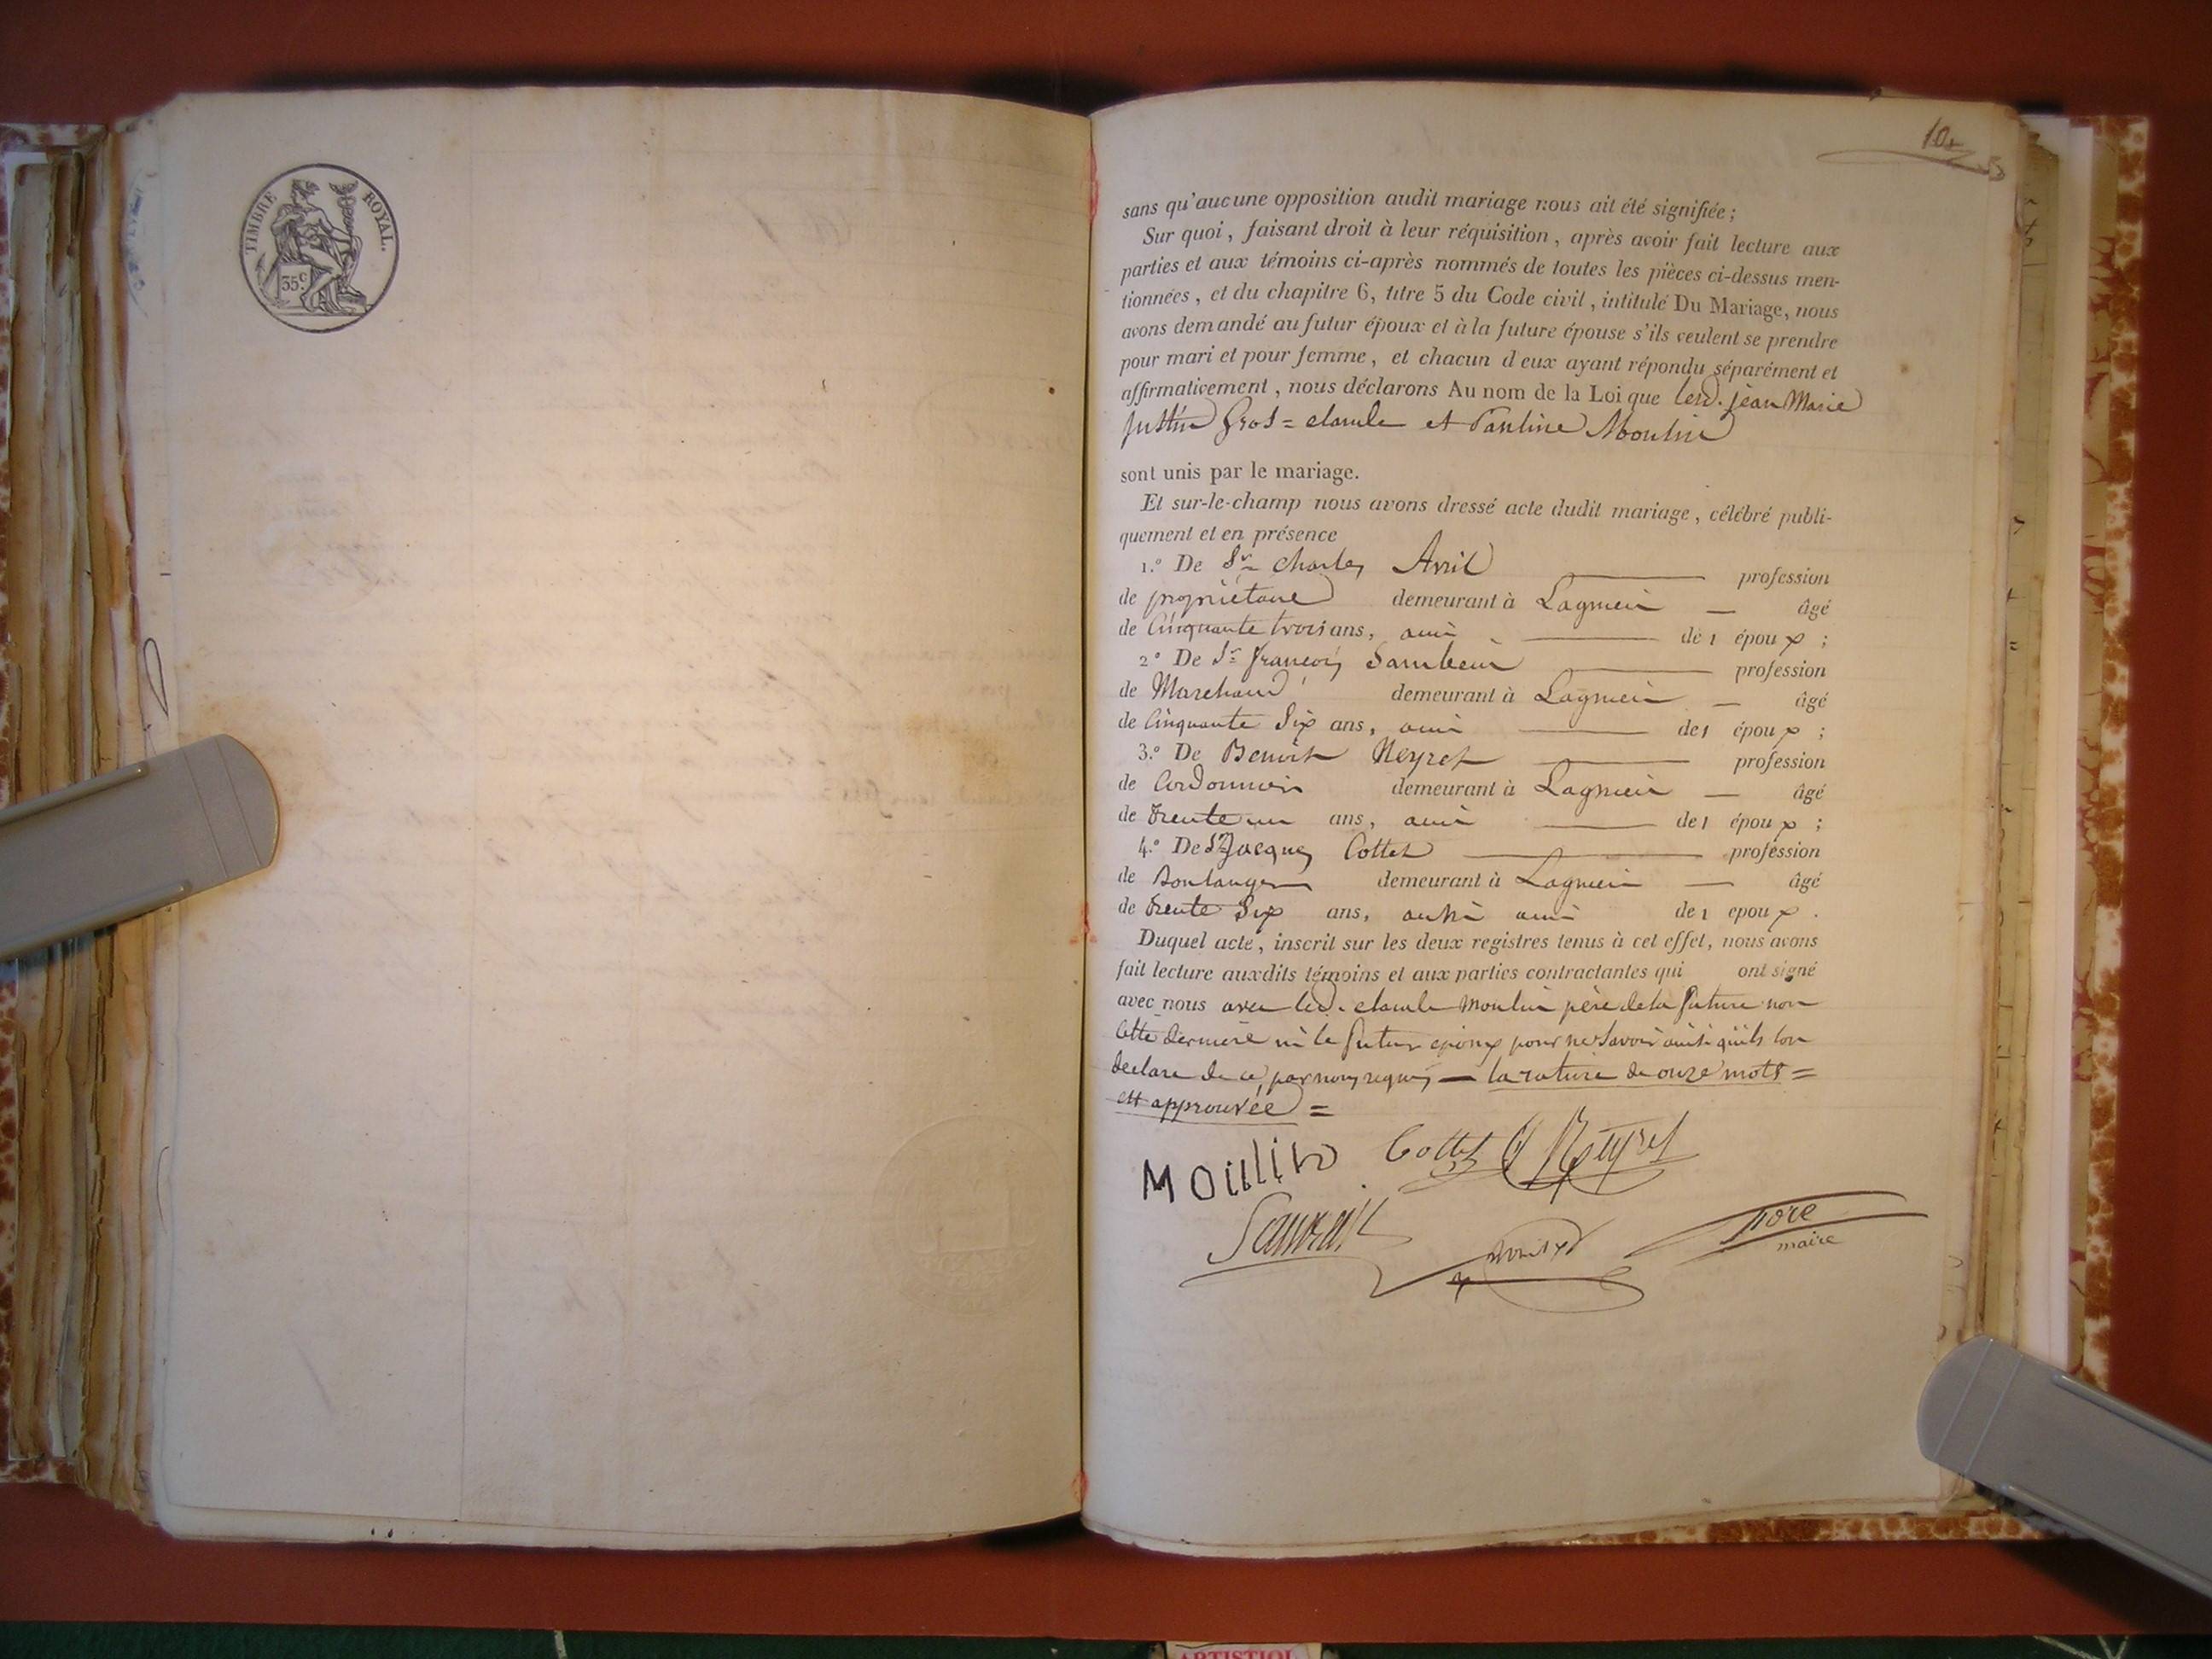 TIMBRE ROYAL.
35c.
10
sans qu'aucune opposition audit mariage nous ait été signifiée ;
Sur quoi, faisant droit à leur réquisition, après avoir fait lecture aux
parties et aux témoins ci-après nommés de toutes les pièces ci-dessus men-
tionnées, et du chapitre 6, titre 5 du Code civil, intitulé Du Mariage, nous
avons demandé au futur époux et à la future épouse s'ils veulent se prendre
pour mari et pour femme, et chacun d'eux ayant répondu séparément et
affirmativement, nous déclarons Au nom de la Loi que lesd. jean Marie
justin Gros = claude et Pauline Moulin
sont unis par le mariage.
Et sur-le-champ nous avons dressé acte dudit mariage, célébré publi-
quement et en présence
1.° De Sr Charles Avril — profession
de propriétaire demeurant à Lagnieu — âgé
de Cinquante trois ans, ami — de l époux ;
2° De Sr françois — profession
de Marchand demeurant à Lagnieu — âgé
de Cinquante Six ans, ami — de l époux ;
3.° De Benoit Neyret — profession
de Cordonnier demeurant à Lagnieu — âgé
de trente un ans, ami — de l époux ;
4.° De Sr Jacques Cottet — profession
de Boulanger demeurant à Lagnieu — âgé
de trente Six ans, aussi ami de l epoux .
Duquel acte, inscrit sur les deux registres tenus à cet effet, nous avons
fait lecture auxdits témoins et aux parties contractantes qui ont signé
avec nous avec led. claude Moulin père de la future non
cette dernière ni le futur epoux pour ne Savoir ainsi qu'ils l'on
declare de ce, par nous requis — la rature de onze mots =
est approuvée =
MOULIN Cottet Neyret
pore
maire
ARTISTIQU